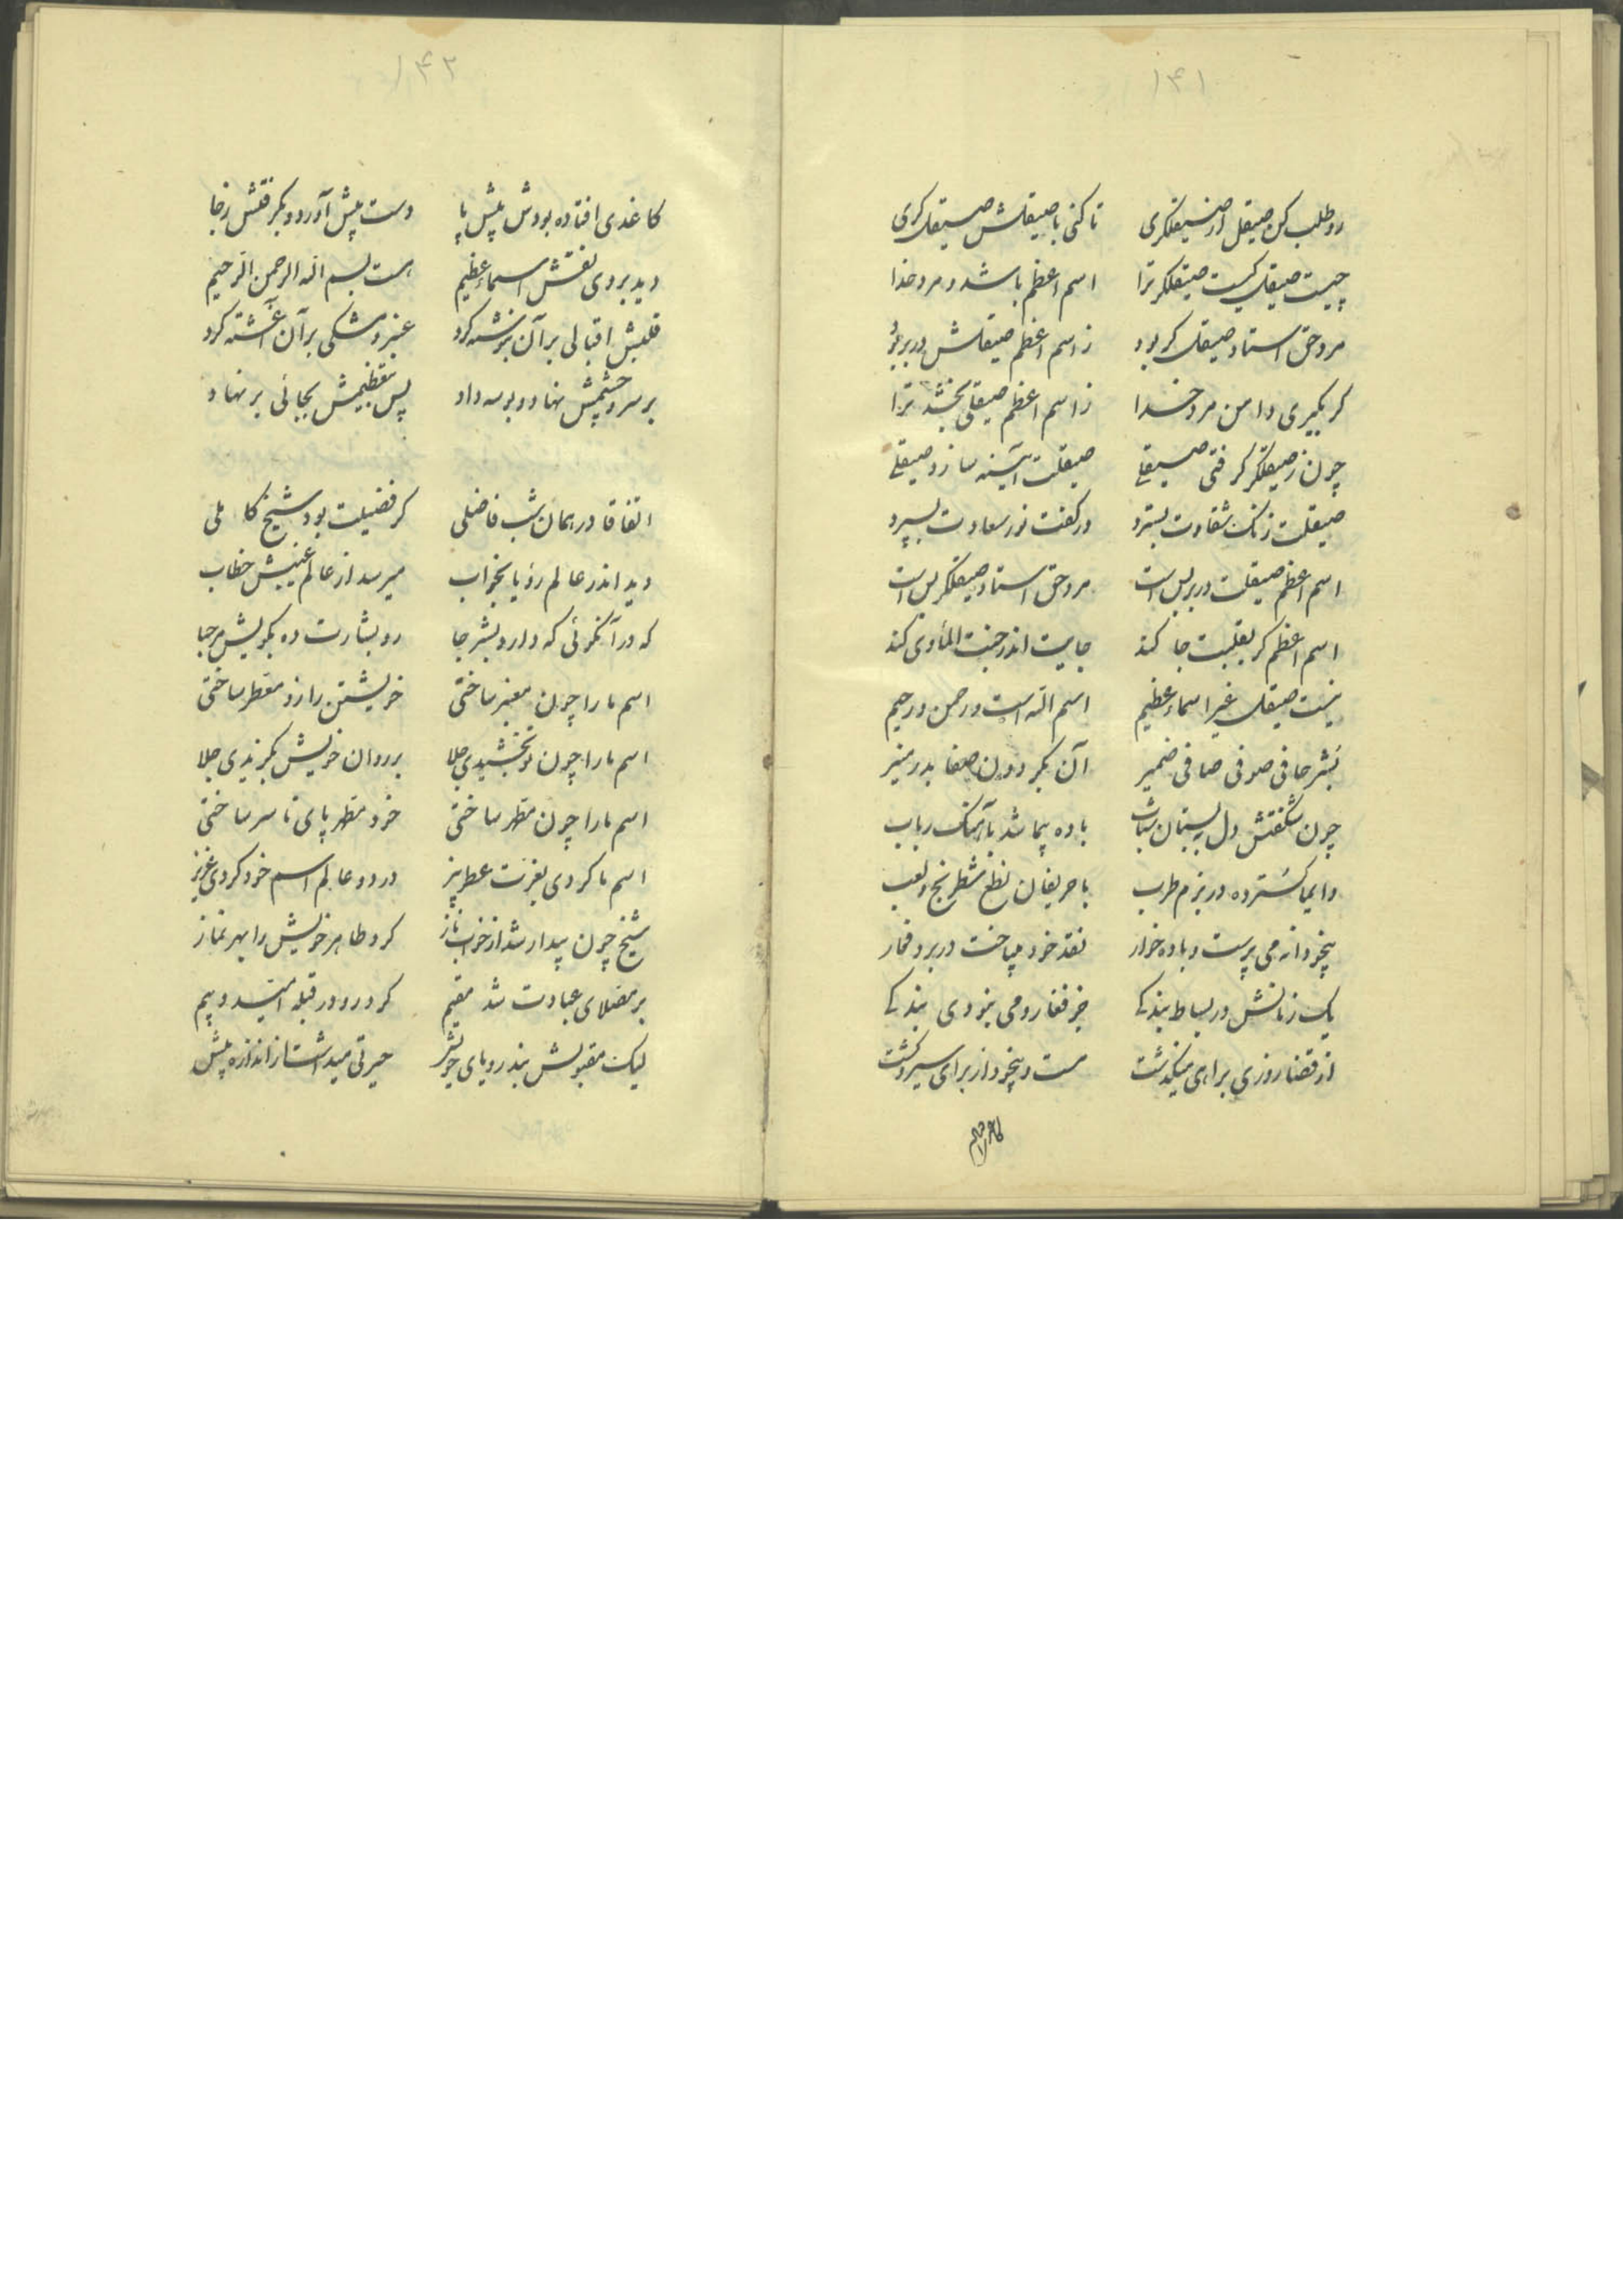 ۱۴۱
رو طلب کن صیقل از صیقلگری تا کنی با صیقلش صیقل گری
چیست صیقل کیست صیقلگر ترا اسم اعظم باشد و مرد خدا
مرد حق استاد صیقل گر بود ز اسم اعظم صیقلش در بر بود
گر بگیری دامن مرد خدا ز اسم اعظم صیقلی بخشد ترا
چون ز صیقلگر گرفتی صیقلی صیقلت آئینه سازد صیقلی
صیقلت زنگ شقاوت بسترد در کفت نور سعادت بسپرد
اسم اعظم صیقلت در بر بس است مرد حق استاد صیقلگر بس است
اسم اعظم گر بقلبت جا کند جایت اندر جنت المأوی کند
نیست صیقل غیر اسماء عظیم اسم الله است و رحمن و رحیم
بشر حافی صوفی صافی ضمیر آن بگردون صفا بدر منیر
چون شکفتش دل ببستان شباب باده پیما شد بآهنگ رباب
دایما گسترده در بزم طرب با حریفان نطع شطرنج و لعب
بیخودانه می پرست و باده خوار نقد خود میباخت در برد و قمار
یک زمانش در بساط بندگی جز قمار و می نبودی بندگی
از قضا روزی براهی میگذشت مست و بیخود از برای سیر و گشت
کاغذی
۱۴۲
کاغذی افتاده بودش پیش پا دست پیش آورد و بگرفتش ز جا
دید بر وی نقش اسماء عظیم هست بسم الله الرحمن الرحیم
قلبش اقبالی بر آن برنشته کرد عنبر و مشکی بر آن آغشته کرد
بر سر و چشمش نهاد و بوسه داد پس بتعظیمش بجائی بر نهاد
اتفاقا در همان شب فاضلی کز فضیلت بود شیخ کاملی
دید اندر عالم رؤیا بخواب میرسد از عالم غیبش خطاب
که در آنکوئی که دارد بشر جا رو بشارت ده بگویش مرحبا
اسم ما را چون معنبر ساختی خویشتن را زو معطر ساختی
اسم ما را چون تو بخشیدی جلا بر روان خویش بگزیدی جلا
اسم ما را چون مطهر ساختی خود مطهر پای تا سر ساختی
اسم ما کردی بعزت عطر بیز در دو عالم اسم خود کردی عزیز
شیخ چون بیدار شد از خواب ناز کرد طاهر خویش را بهر نماز
بر مصلای عبادت شد مقیم کرد رو در قبله امید و بیم
لیک مقبولش نبد رویای خویش حیرتی میداشت ز اندازه بیش